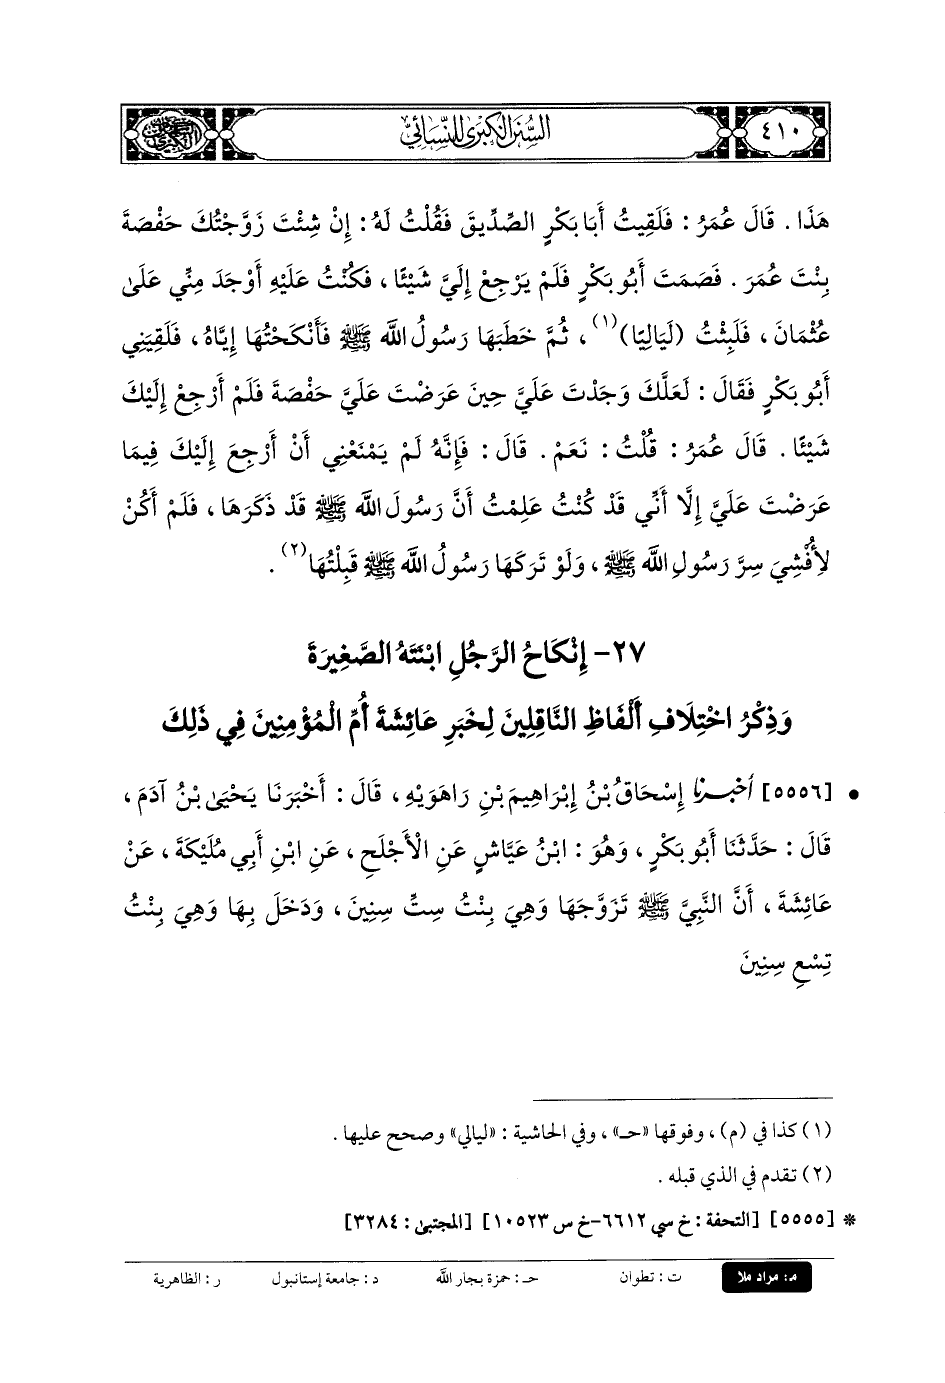 ٤١٠
السُّنَنُ الكُبْرَى لِلنَّسَائِيِّ
هَذَا . قَالَ عُمَرُ : فَلَقِيتُ أَبَا بَكْرٍ الصِّدِّيقَ فَقُلْتُ لَهُ : إِنْ شِئْتَ زَوَّجْتُكَ حَفْصَةَ
بِنْتَ عُمَرَ . فَصَمَتَ أَبُو بَكْرٍ فَلَمْ يَرْجِعْ إِلَيَّ شَيْئًا ، فَكُنْتُ عَلَيْهِ أَوْجَدَ مِنِّي عَلَى
عُثْمَانَ ، فَلَبِثْتُ (لَيَالِيًا)(١) ، ثُمَّ خَطَبَهَا رَسُولُ اللَّه ﷺ فَأَنْكَحْتُهَا إِيَّاهُ ، فَلَقِيَنِي
أَبُو بَكْرٍ فَقَالَ : لَعَلَّكَ وَجَدْتَ عَلَيَّ حِينَ عَرَضْتَ عَلَيَّ حَفْصَةَ فَلَمْ أَرْجِعْ إِلَيْكَ
شَيْئًا . قَالَ عُمَرُ : قُلْتُ : نَعَمْ . قَالَ : فَإِنَّهُ لَمْ يَمْنَعْنِي أَنْ أَرْجِعَ إِلَيْكَ فِيمَا
عَرَضْتَ عَلَيَّ إِلَّا أَنِّي قَدْ كُنْتُ عَلِمْتُ أَنَّ رَسُولَ اللَّه ﷺ قَدْ ذَكَرَهَا ، فَلَمْ أَكُنْ
لِأُفْشِيَ سِرَّ رَسُولِ اللَّه ﷺ ، وَلَوْ تَرَكَهَا رَسُولُ اللَّه ﷺ قَبِلْتُهَا(٢) .
٢٧- إِنْكَاحُ الرَّجُلِ ابْنَتَهُ الصَّغِيرَةَ
وَذِكْرُ اخْتِلَافِ أَلْفَاظِ النَّاقِلِينَ لِخَبَرِ عَائِشَةَ أُمِّ الْمُؤْمِنِينَ فِي ذَلِكَ
• [٥٥٥٦] أَخْبَرَنَا إِسْحَاقُ بْنُ إِبْرَاهِيمَ بْنِ رَاهَوَيْهِ ، قَالَ : أَخْبَرَنَا يَحْيَى بْنُ آدَمَ ،
قَالَ : حَدَّثَنَا أَبُو بَكْرٍ ، وَهُوَ : ابْنُ عَيَّاشٍ عَنِ الْأَجْلَحِ ، عَنِ ابْنِ أَبِي مُلَيْكَةَ ، عَنْ
عَائِشَةَ ، أَنَّ النَّبِيَّ ﷺ تَزَوَّجَهَا وَهِيَ بِنْتُ سِتِّ سِنِينَ ، وَدَخَلَ بِهَا وَهِيَ بِنْتُ
تِسْعِ سِنِينَ
(١) كذا في (م) ، وفوقها «حـ» ، وفي الحاشية : «ليالي» وصحح عليها .
(٢) تقدم في الذي قبله .
* [٥٥٥٥] [التحفة : خ سي ٦٦١٢-خ س ١٠٥٢٣] [المجتبى : ٣٢٨٤]
م: مراد ملا ت : تطوان حـ : حمزة بجار اللَّه د : جامعة إستانبول ر : الظاهرية